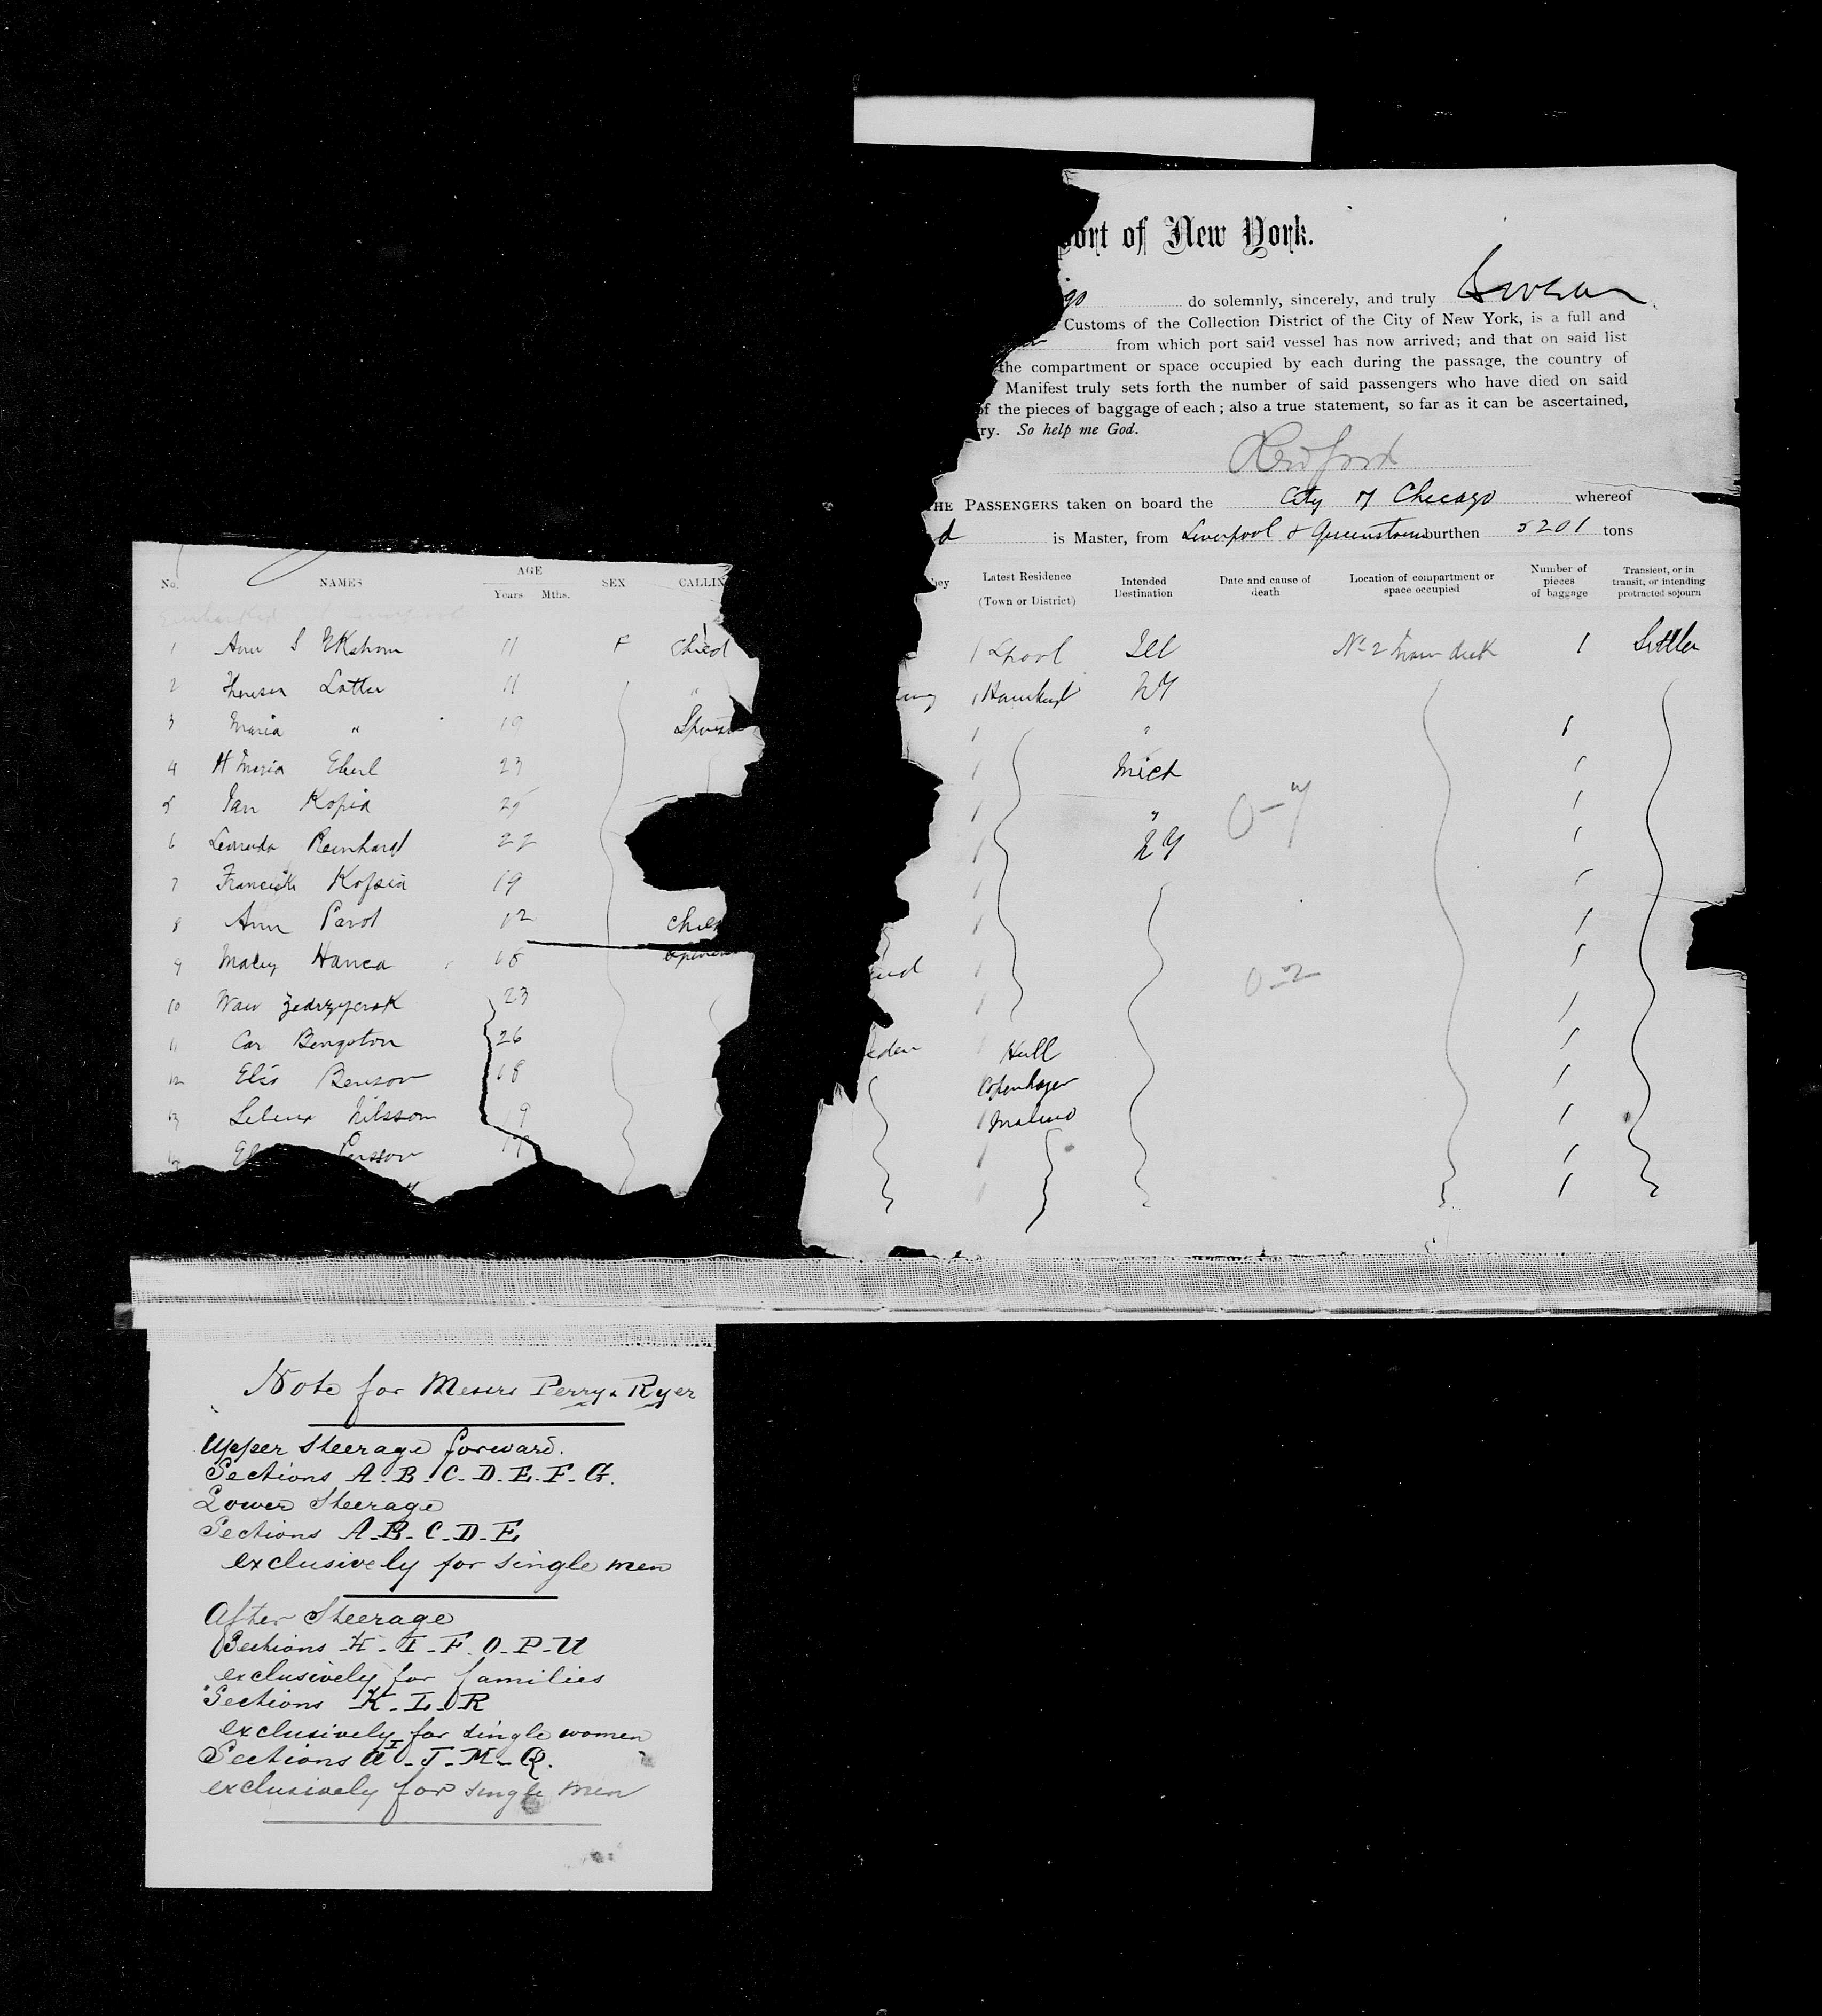 ort of New York.
go do solemnly, sincerely, and truly swear
Customs of the Collection District of the City of New York, is a full and
from which port said vessel has now arrived; and that on said list
the compartment or space occupied by each during the passage, the country of
Manifest truly sets forth the number of said passengers who have died on said
of the pieces of baggage of each; also a true statement, so far as it can be ascertained,
ry. So help me God.
Redford
HE PASSENGERS taken on board the City of Chicago whereof
d is Master, from Liverpool & Queenstown burthen 5201 tons
No. NAMES AGE Years Mths. SEX CALLIN hey Latest Residence (Town or District) Intended Destination Date and cause of death Location of compartment or space occupied Number of pieces of baggage Transient, or in transit, or intending protracted sojourn
1 Ann S 11 F Child 1 Lpool Ill No 2 Main deck 1 Settler
2 Theresa 11 " 1 NY
3 Maria " 19 1 " 1
4 H Maria Eberl 23 1 Mich 1
5 Jan Kopia 25 1 " 1
6 Reinhard 22 1 NY 1
7 19 1 1
8 Ann Parol 12 Chil 1 1
9 Hanca 18 1 1
10 23 1 1
11 Car Bengston 26 eden 1 Hull 1
12 Elis Benson 18 Copenhagen 1
13 Selma Nilsson 19 1 Malmo 1
El Persson 19 1 1
1 1
Note for Messrs Perry & Ryer
Upper Steerage forward.
Sections A-B-C-D-E-F-G.
Lower Steerage
Sections A-B-C-D-E
exclusively for single men
After Steerage
Sections H-I-F-O-P-U
exclusively for families
Sections K-L-R
exclusively for single women
Sections J-M-Q.
exclusively for single men